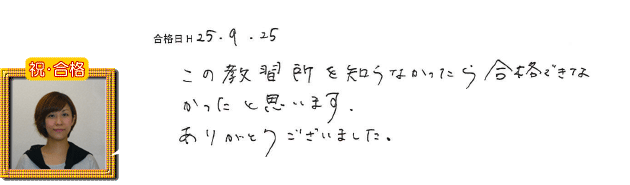 合格日 H 25.9.25
祝・合格
この教習所を知らなかったら合格できな
かったと思います.
ありがとうございました。